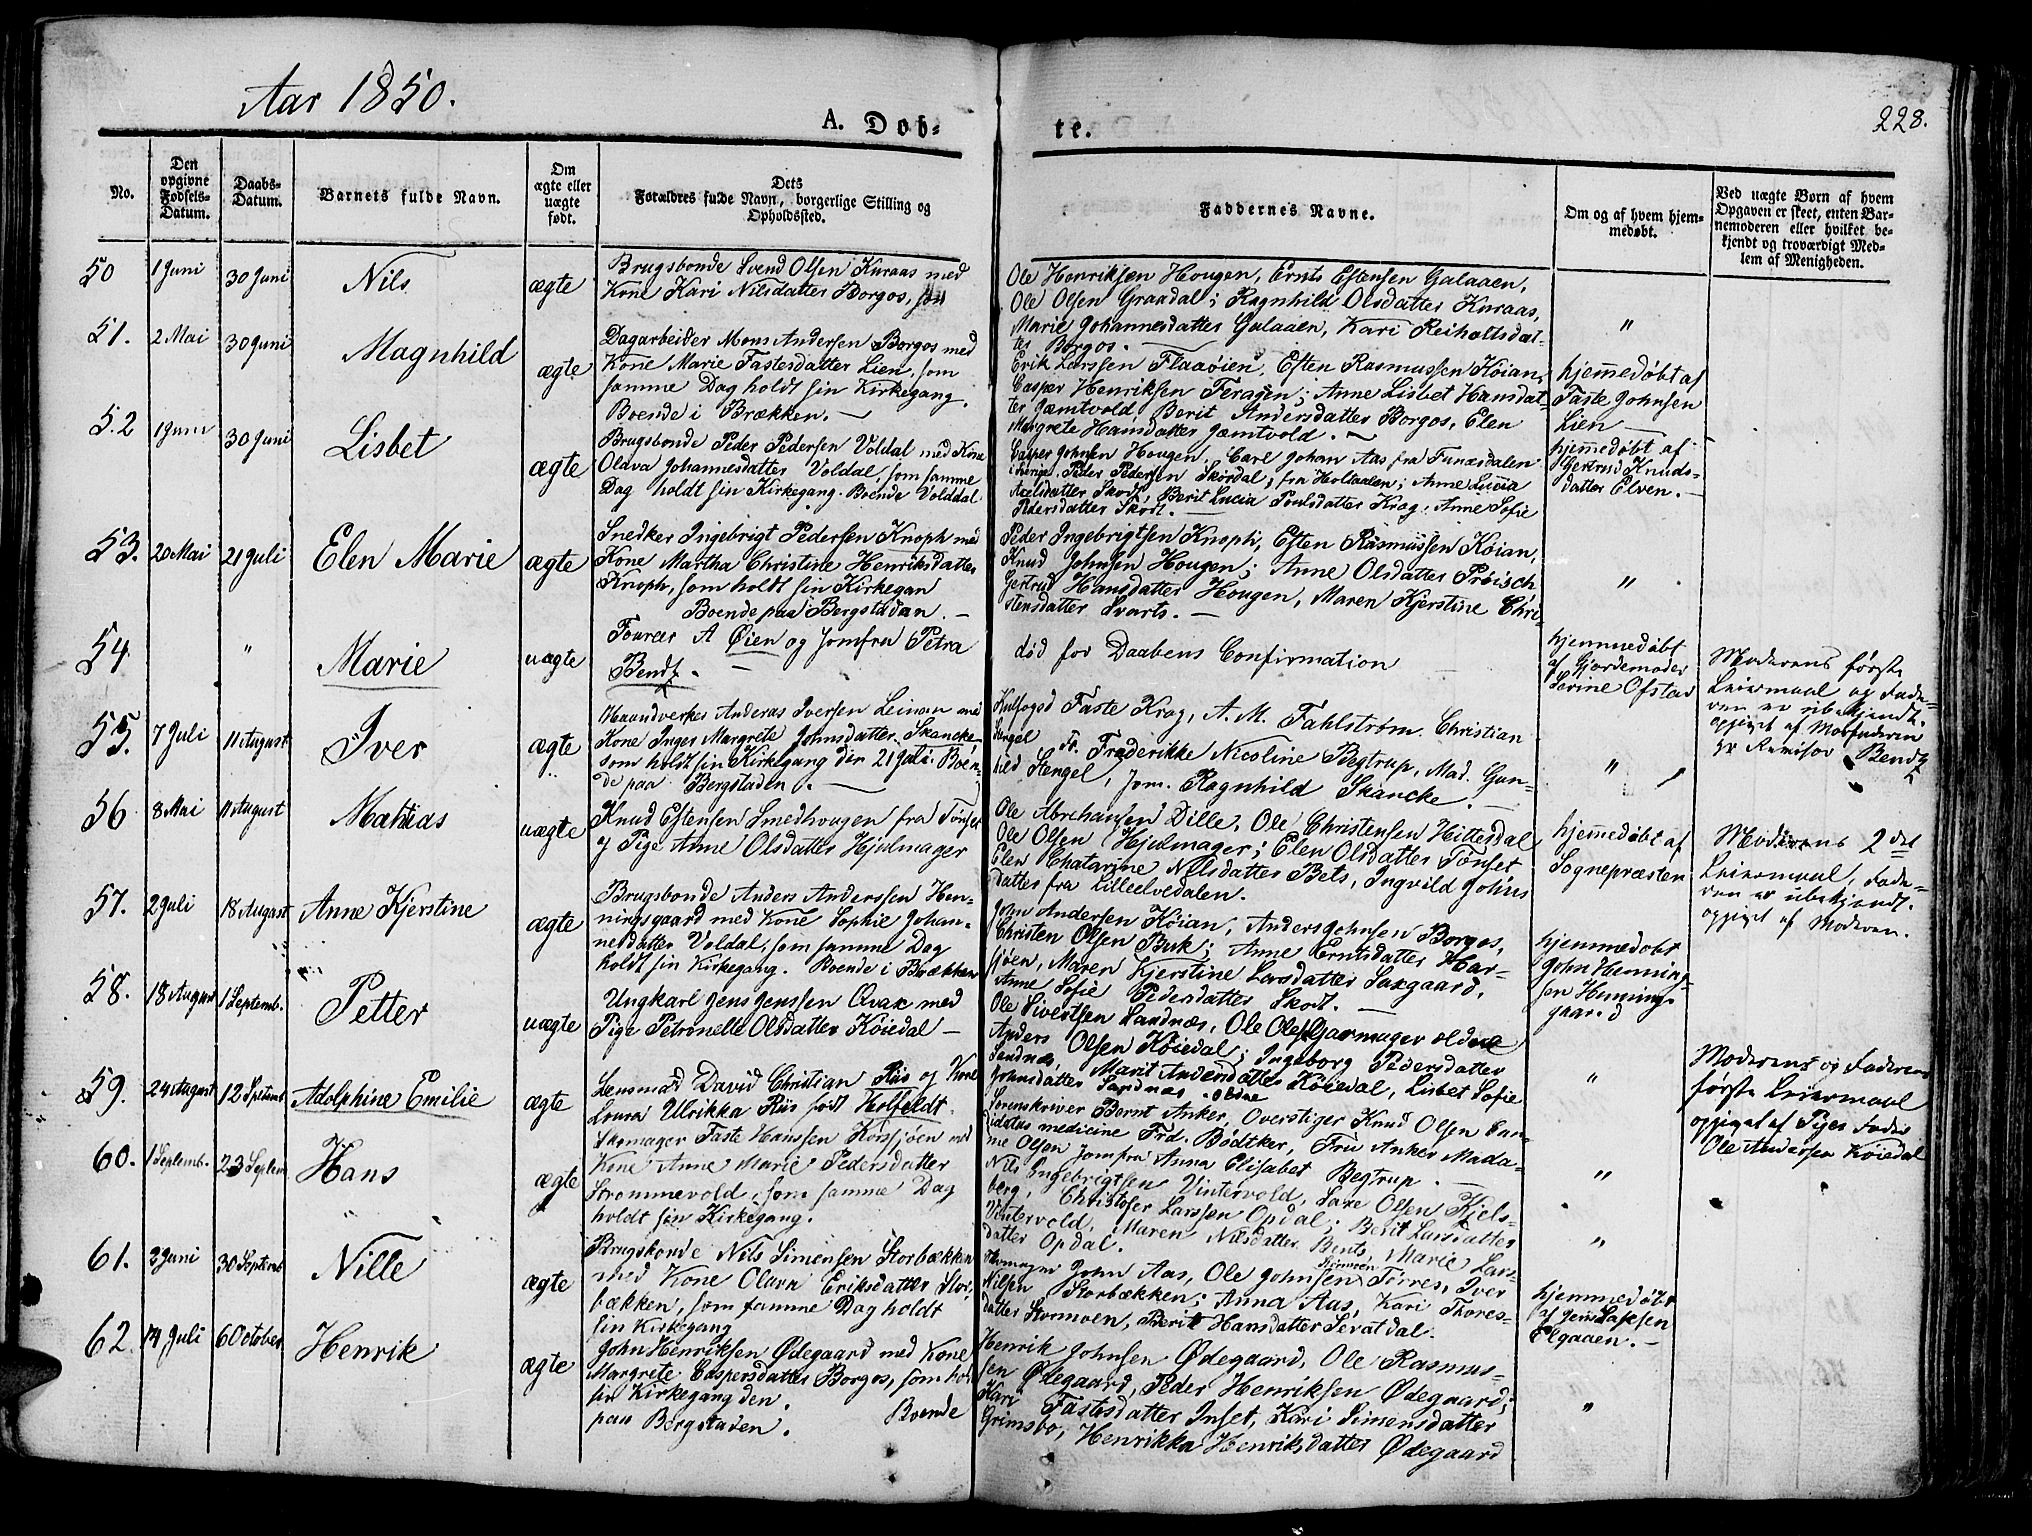 Aar 1850.
228.
A. Døb-
te.
No.
Den opgivne Fødsels-Datum.
Daabs-Datum.
Barnets fulde Navn.
Om ægte eller uægte født.
Dets Forældres fulde Navn, borgerlige Stilling og Opholdssted.
Faddernes Navne.
Om og af hvem hjem-
medøbt.
Ved uægte Børn af hvem
Opgaven er skeet, enten Bar-
nemoderen eller hvilket be-
kjendt og troværdigt Med-
lem af Menigheden.
50
1 Juni
30 Juni
Nils
ægte
Brugsbonde Svend Olsen Kuraas med
Kone Kari Nilsdatter Borgos,
Ole Henriksen Hougen, Ernts Estensen Galaaen,
Ole Olsen Graadal; Ragnhild Olsdatter Kuraas,
Marie Johannesdatter Galaaen, Kari Reiholtsdat-
ter Borgos. —
"
51.
2 Mai
30 Juni
Magnhild
ægte
Dagarbeider Mons Andersen Borgos med
Kone Marie Fastesdatter Lien, som
samme Dag holdt sin Kirkegang.
Boende i Brækken. —
Erik Larssen Flaaøien, Esten Rasmussen Køian,
Casper Henriksen Feragen; Anne Lisbet Hansdat-
ter Jæmtvold Berit Andersdatter Borgos, Elen
Margrete Hansdatter Jæmtvold. —
hjemmedøbt af
Faste Johnsen
Lien —
52
1 Juni
30 Juni
Lisbet
ægte
Brugsbonde Peder Pedersen Voldal med Kone
Oldva Johannesdatter Voldal, som samme
Dag holdt sin Kirkegang. Boende Volddal
Casper Johnsen Hougen, Carl Johan Aas fra Funæsdalen
i Sverige. Peder Pedersen Skordal, fra Holtaalen; Anne Lucia
Axelsdatter Skott, Berit Lucia Poulsdatter Krag, Anne Sofie
Pedersdatter Skott. —
hjemmedøbt af
Gertrud Knuds-
datter Elven. —
53.
20 Mai
21 Juli
Elen Marie
ægte
Snedker Ingebrigt Pedersen Knoph med
Kone Martha Christine Henriksdatter
Knoph, som holdt sin Kirkegan
Boende paa Bergstadan. —
Peder Ingebrigtsen Knoph, Esten Rasmussen Køian,
Knud Johnsen Hougen; Anne Olsdatter Prøisch
Gertrud Hansdatter Hougen, Maren Kjerstine Chri-
stensdatter Svarts. —
"
54
"
Marie
uægte
Fourer A Øien og Jomfru Petra
Bendz. —
død for Daabens Confirmation
hjemmedøbt
af Gjordemoder
Serine Ofstad
Moderens første
Leiermaal og Fade-
ren er ubekjendt.
opgivet af Morfaderen
gr Revisor Bendz
55.
7 Juli
11 August
Iver
ægte
Haandverker Anderas Iversen Leinan med
Kone Inger Margrete Johnsdatter Skancke
som holdt sin Kirkegang den 21 Juli. Boen-
de paa Bergstaden. —
Kulfogd Faste Krog, A. M. Fahlstrøm. Christian
Stengel Fr. Frederikke Nicoline Begtrup, Mad. Gun-
hild Stengel, Jom. Ragnhild Skancke. —
"
56
8 Mai
11 August
Mathias
uægte
Knud Estensen Smedhougen fra Tønset
og Pige Anne Olsdatter Hjulmager
Ole Abrahansen Dille, Ole Christensen Hittesdal
Ole Olsen Hjulmager; Elen Olsdatter Tønset
Elen Chatarine Nilsdatter Bets, Ingvild Johns
datter fra Lilleelvedalen.
hjemmedøbt af
Sognepræsten
Moderens 2det
Leiermaal, Fade-
ren er ubekjendt.
opgivet af Moderen.
57.
2 Juli
18 August
Anne Kjerstine
ægte
Brugsbonde Anders Anderssen Hen-
ningsgaard med Kone Sophie Johan-
nesdatter Voldal, som samme Dag
holdt sin Kirkegang. Boende i Brækken
John Andersen Køian, Anders Johnsen Borgos,
Christen Olsen Buk; Anne Erntsdatter Har-
sjøen, Maren Kjerstine Larsdatter Saxgaard,
Anne Sofie Pedersdatter Skott. —
hjemmedøbt
John Henning-
sen Henning-
gaard
58.
18 August
1 Septemb.
Petter
uægte
Ungkarl Jens Jenssen Qvax med
Pige Petronelle Olsdatter Køiedal —
Ole Sivertsen Sandnæs, Ole Olsen Garmager Oldne
Anders Olsen Køiedal; Ingeborg Pedersdatter
Sandnæs Marit Andersdatter Køiedal, Lisbet Sofie
Johnsdatter Sandnæs Oldne
"
Moderens og Faderens
første Leiermaal
opgivet af Piges Fader
Ole Andersen Køiedal
59.
24 August
12 Septemb
Adolphine Emilie
ægte
Lensmad David Christian Riis og Kone
Loura Ulrikka Riis født Holfeldt.
Sorenskriver Bernt Anker, Overstiger Knud Olsen Can-
didatus medicine Frd. Bødtker, Fru Anker Mada-
me Olsen Jomfru Anna Elisabet Begtrup. —
"
60.
1 Septemb.
23 Septem
Hans
ægte
Skomager Faste Hanssen Korssjøen med
Kone Anne Marie Pedersdatter
Strømmevold, som samme Dag
holdt sin Kirkegang.
Nils Ingebrigtsen Vintervold, Lare Olsen Kjels-
berg, Christofer Larssen Opdal; Berit Larsdatter
Vintervold, Maren Nilsdatter Bents, Marie Lars-
datter Opdal.
"
61.
3 Juni
30 Septemb
Nille
ægte
Brugsbonde Nils Simensen Storbækken
med Kone Olava Eriksdatter Stor-
bækken, som samme Dag holdt
sin Kirkegang
John Aas, Ole Johnsen Stormoen Torres, Iver
Nilsen Storbækken; Anna Aas, Kari Thores-
datter Stormoen, Berit Hansdatter Sevatdal.
hjemmedøbt
af Jens Larsen
Elgaaen. —
62.
14 Juli
6 October
Henrik
ægte
John Henriksen Ødegaard med Kone
Margrete Caspersdatter Borgos, som hol
sin Kirkegang den. Boende
paa Bergstaden.
Henrik Johnsen Ødegaard, Ole Rasmus-
sen Ødegaard, Peder Henriksen Ødegaard;
Kari Fastesdatter Inset, Kari Simensdatter
Grimsbo, Henrikka Henriksdatter Ødegaard
"